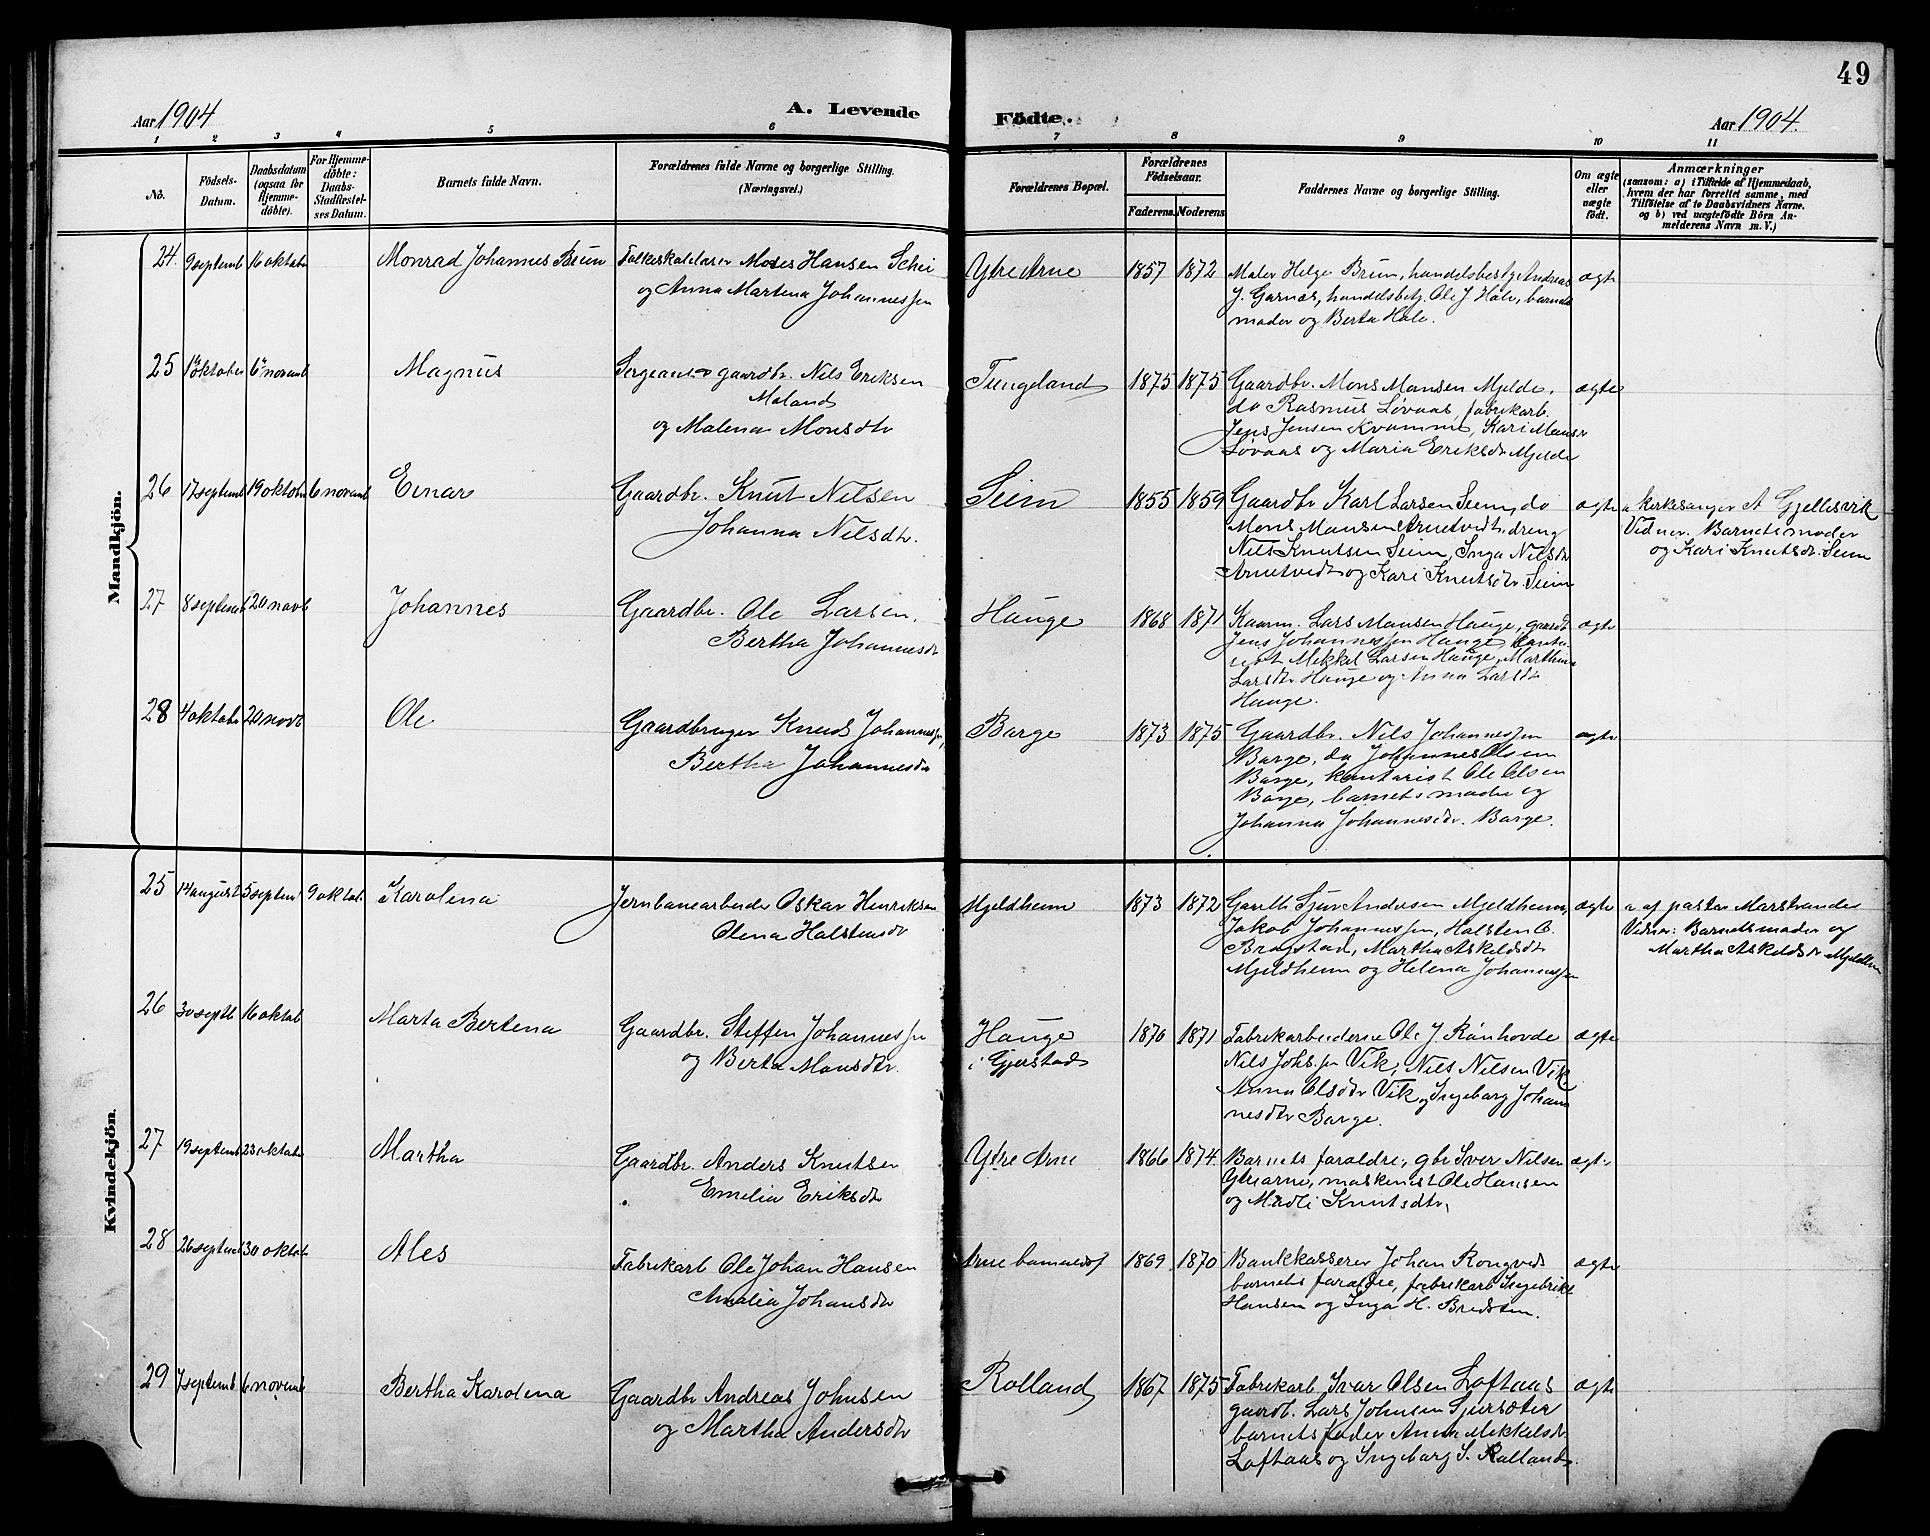 49
Aar 1904
A. Levende
Födte.
Aar 1904.
1 2 3 4 5 6 7 8 9 10 11
No.
Födsels-
Datum.
Daabsdatum
(ogsaa for
Hjemme-
döbte).
For Hjemme-
döbte:
Daabs-
Stadfæstel-
ses Datum.
Barnets fulde Navn.
Forældrenes fulde Navne og borgerlige Stilling.
(Næringsvei.)
Forældrenes Bopæl.
Forældrenes
Födselsaar.
Faderens. Moderens
Faddernes Navne og borgerlige Stilling.
Om ægte
eller
uægte
födt.
Anmærkninger
(saasom: a) i Tilfælde af Hjemmedaab,
hvem der har forrettet samme, med
Tilföielse af to Daabsvidners Navne.
og b) ved uægtefödte Börn An-
melderens Navn m. V.)
Mandkjön.
24. 9 septemb 16 oktobr Monrad Johannes Brun
Moses Hansen
og Anna Martena Johannessen
Ytre Arne 1857 1872
Maler Helge Brun, handelsbest. Andreas
J. Garnæs, handelsbetj. Ole J. Hole, barnets
moder og Berta Hole.
ægte
25 1 oktober 6 novemb Magnus
Sergeant o gaardbr. Nils Eriksen
og Malena Monsdtr
Tungeland 1875 1875
Gaardbr. Mons Monsen Mjelde,
do Rasmus Løvaas, fabrikarb.
Jens Jensen Kvamme, Kari Monsdr
Løvaas og Maria Eriksdr Mjelde
ægte
26 17 septemb 19 oktobr 6 novemb Einar
Gaardbr. Knut Nilsen
Johanna Nilsdtr.
Seim 1855 1859
Gaardbr Karl Larsen Seim, do
Mons Monsen Arnetvedt, dreng
Nils Knutsen Seim, Inga Nilsdtr
Arnetvedt og Kari Knutsdtr. Seim
ægte
a kirkesanger A Gjellesvik
Vidner. Barnets moder
og Kari Knutsdr. Seim
27 8 septemb 20 novb Johannes
Gaardbr. Ole Larsen,
Bertha Johannesdtr
Hauge 1868 1871
Lars Monsen Hauge, gaardb
Jens Johannessen Hauge,
Mikkel Larsen Hauge, Marthina
Larsdtr Hauge og Anna Larsdtr
Hauge.
ægte
28 4 oktobr 20 novb Ole
Gaardbruger Knud Johannessen,
Bertha Johannesdtr
Borge 1873 1875
Gaardbr. Nils Johannessen
Borge, do Johannes Olsen
Borge, kontorist Ole Olsen
Borge, barnets moder og
Johanna Johannesdtr. Borge.
ægte
Kvindekjön.
25 14 august 5 septemb 9 oktob. Karolena
Jernbanearbeider Oskar Henriksen
Olena Halstensdtr
Mjeldheim 1873 1872
Sjur Andersen Mjeldheim,
Jakob Johannessen, Halsten O.
Brogstad, Martha Askildsdtr
Mjeldheim og Helena Johannessen
ægte
a af pastor Marstrander
Vidner: Barnets moder og
Martha Askildsdr Mjeldheim
26 30 septb 16 oktob Marta Bertena
Gaardbr. Steffen Johannessen
og Berta Monsdtr.
Hauge
i Gjerstad
1870 1871
Fabrikarbeiderne Ole J. Rønhovde
Nils Johssen Vik, Nils Nilsen Vik,
Anna Olsdtr Vik og Ingeborg Johan
nesdtr Borge.
ægte
27 19 septemb 23 oktobr Martha
Gaardbr. Anders Knutsen
Emelia Eriksdtr
Ytre Arne 1866 1874.
Barnets foraldre, gbr Iver Nilsen
Ytrearne, maskinist Ole Hansen
og Madli Knutsdtr,
ægte
28 26 septemb 30 oktob. Ales
Fabrikarb Ole Johan Hansen
Amalia Johansdtr
Arne 1869 1870
Bankkasserer Johan Rongved
barnets foraldre, fabrikarb Ingebrikt
Hansen og Inga H. Bredsten.
ægte
29 7 septemb 6 novemb Bertha Karolena
Gaardbr Andreas Johnsen
og Martha Andersdtr
Rolland 1867 1875
Fabrikarb Ivar Olsen Loftaas
gaardb. Lars Johnsen Sjursæter
barnets fader Anna Mikkelsdr.
Loftaas og Ingeborg S. Rolland.
ægte